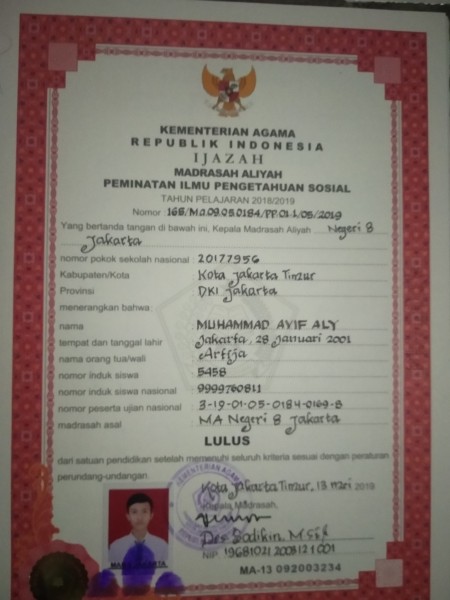 KEMENTERIAN AGAMA
REPUBLIK INDONESIA
IJAZAH
MADRASAH ALIYAH
PEMINATAN ILMU PENGETAHUAN SOSIAL
TAHUN PELAJARAN 2018/2019
Nomor : 168/Ma.09.05.0184/PP.01.1/05/2019
Yang bertanda tangan di bawah ini, Kepala Madrasah Aliyah Negeri 8
Jakarta
nomor pokok sekolah nasional : 20177956
Kabupaten/Kota : Kota Jakarta Timur
Provinsi : DKI Jakarta
menerangkan bahwa:
nama : MUHAMMAD AYIF ALY
tempat dan tanggal lahir : Jakarta, 28 Januari 2001
nama orang tua/wali :
nomor induk siswa : 5458
nomor induk siswa nasional : 9999760811
nomor peserta ujian nasional : 3-19-01-05-0184-0169-8
madrasah asal : MA Negeri 8 Jakarta
LULUS
dari satuan pendidikan setelah memenuhi seluruh kriteria sesuai dengan peraturan
perundang-undangan.
Kota Jakarta Timur, 13 Mei 2019
Kepala Madrasah,
KEMENTERIAN AGAMA
Drs Sodikin, M.Si
NIP. 19681021 200312 1 001
MA-13 092003234